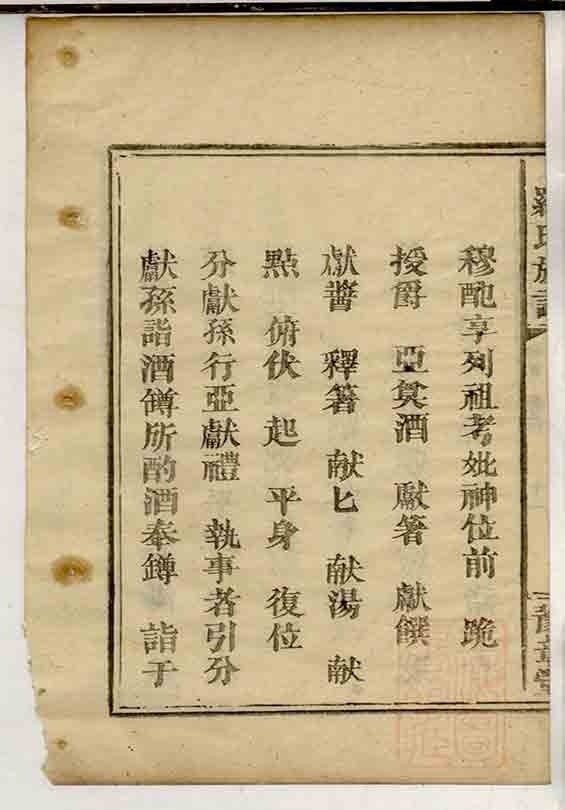 羅氏族譜
豫章堂
穆配享列祖考妣神位前 跪
授爵 亞奠酒 獻箸 獻饌
獻醬 釋箸 献匕 献湯 献
點 俯伏 起 平身 復位
分獻孫行亞獻禮 執事者引分
獻孫詣酒罇所酌酒奉罇 詣于